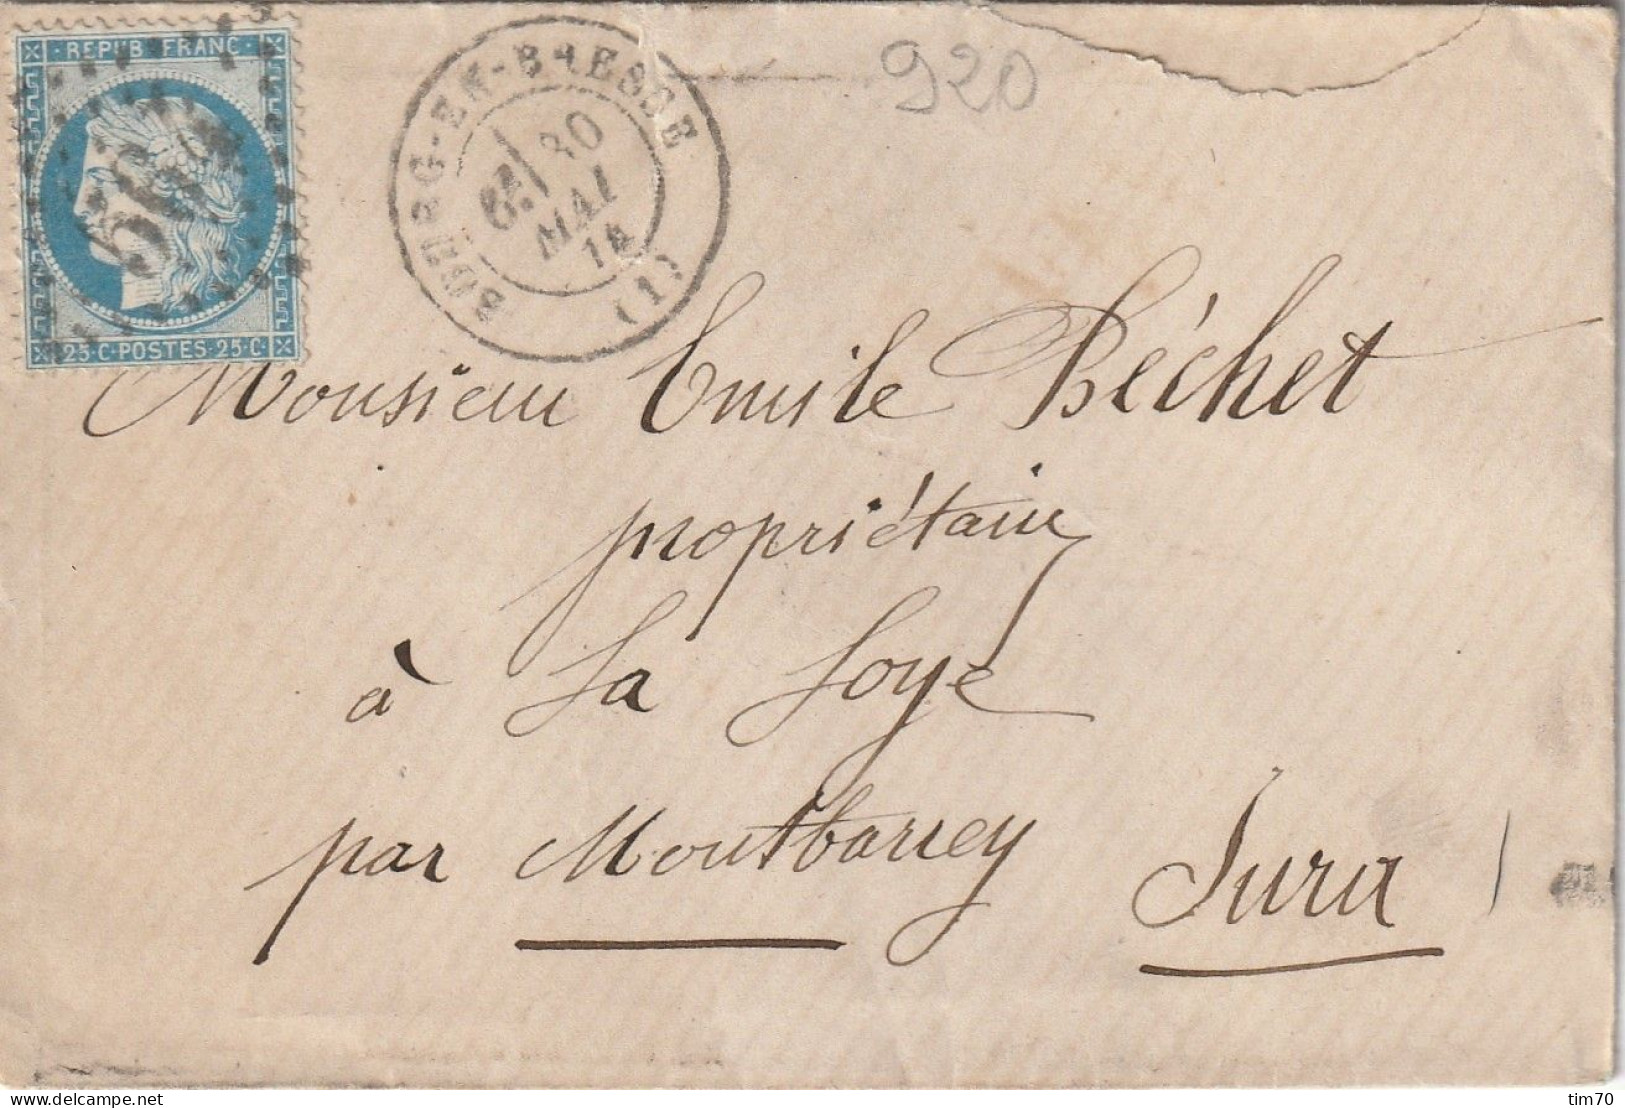 REPUB FRANC
25·C·POSTES·25·C
BOURG-EN-BRESSE
6E
30
MAI
74
(1)
920
Monsieur Emile Béchet
propriétaire
à La Loye
par Montbarrey Jura
delcampe.net
tim70